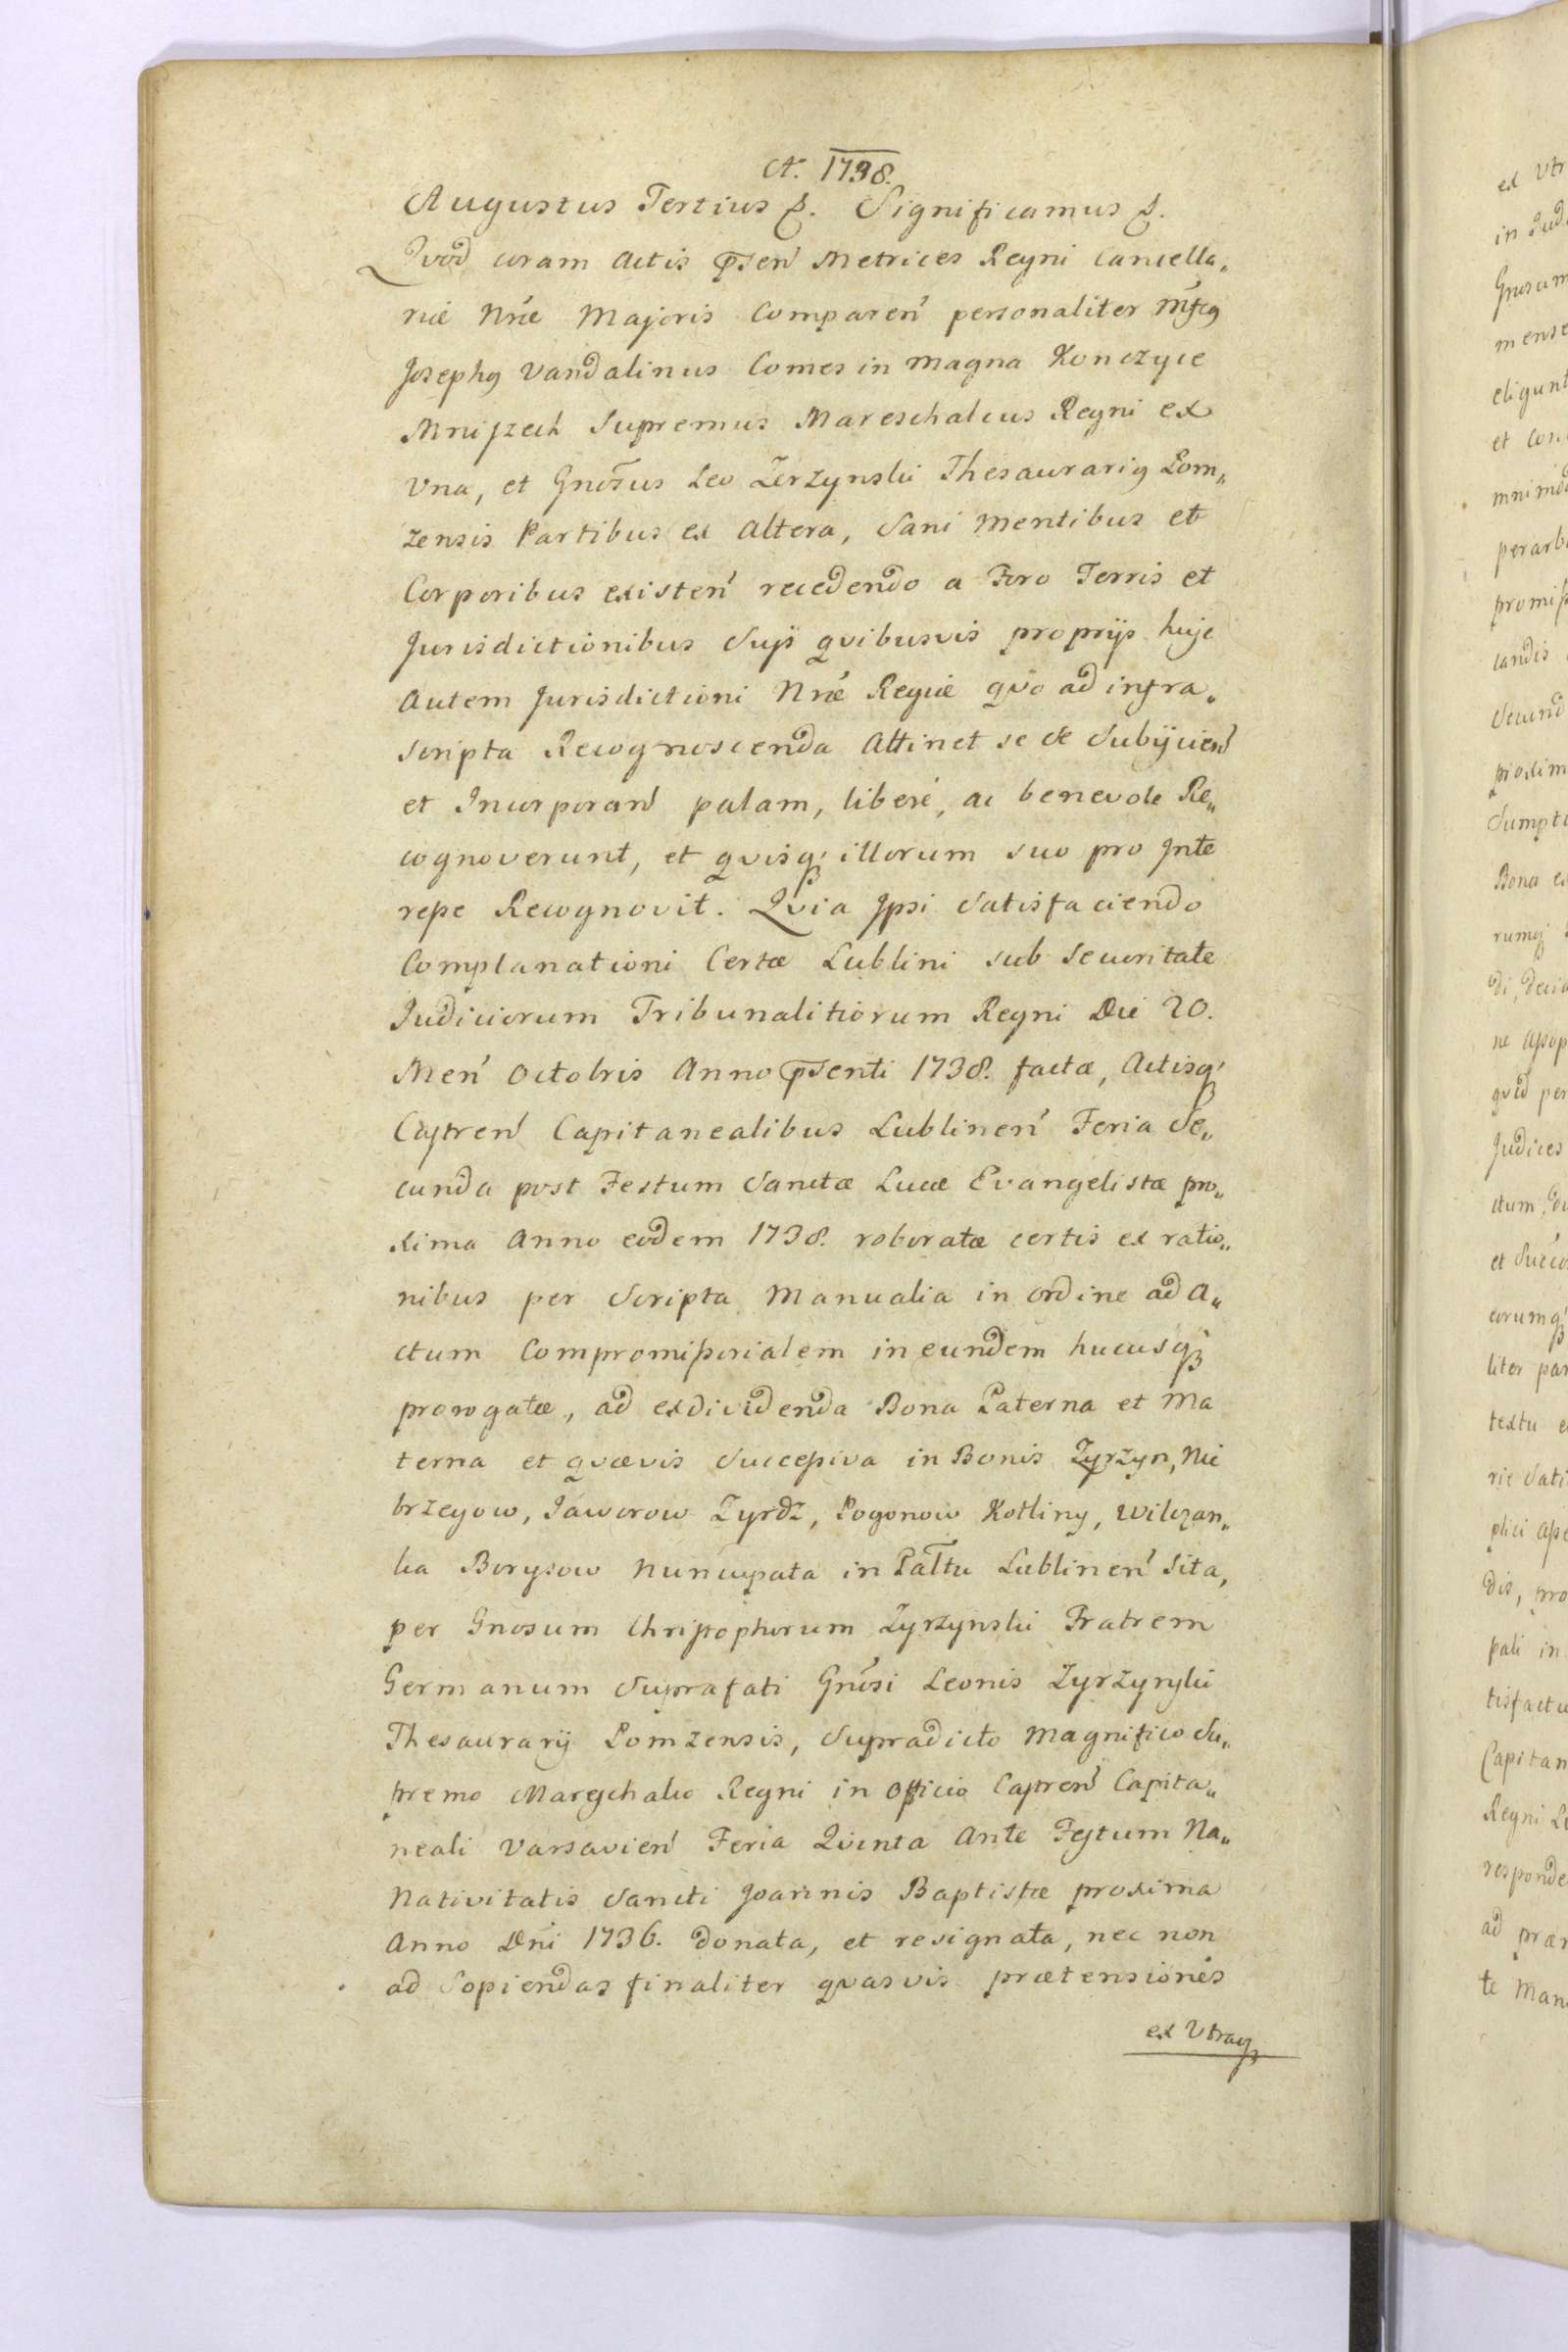 A. 1738.
Augustus Tertius &. Significamus &.
Qvod coram Actis p̄sen' Metrices Regni Cancella„
riæ Nr̃æ Majoris Comparen' personaliter Mgfcg
Josephg Vandalinus Comes in Magna Konczyce
Mniszech Supremus Mareschalcus Regni ex
Vna, et Gnosus Leo Zerzynski Thesaurarig Lom„
zensis Partibus ex Altera, Sani Mentibus et
Corporibus existen' recedendo a Foro Terris et
Jurisdictionibus Suijs qvibusvis proprijs hujc
Autem Jurisdictioni Nr̃æ Regiæ qvo ad infra„
scripta Recognoscenda Attinet se se Subijcien'
et Incorporan' palam, liberé, ac benevole Re„
cognoverunt, et qvisq; illorum suo pro Inte
resse Recognovit. Qvia Ipsi Satisfaciendo
Complanationi Certæ Lublini sub Securitate
Judiciorum Tribunalitiorum Regni Die 20.
Men' Octobris Anno p̄senti 1738. factæ, Actisq;
Castren' Capitanealibus Lublinen' Feria Se„
cunda post Festum Sanctæ Lucæ Evangelistæ pro„
xima Anno eodem 1738. roboratæ certis ex ratio„
nibus per Scripta Manualia in ordine ad A„
ctum Compromissorialem ineundem hucusq;
prorogatæ, ad exdividenda Bona Paterna et Ma
terna et qvævis Successiva in Bonis Zyrzyn, Nie
brzegow, Jaworow Zyrdz, Pogonow Kotliny, Wilczan„
ka Borysow nuncupata in Pal̃tu Lublinen' Sita,
per Gnosum Christophorum Zyrzynski Fratrem
Germanum Suprafati Gnosi Leonis Zyrzynski
Thesaurarij Lomzensis, Supradicto Magnifico Su„
premo Mareschalco Regni in Officio Castren' Capita„
neali Varsavien' Feria Qvinta Ante Festum Na„
Nativitatis Sancti Joannis Baptistæ proxima
Anno Dñi 1736. donata, et resignata, nec non
ad Sopiendas finaliter qvasvis prætensiones
ex Utraq;
ex Utr
in Jud
Gnosum
mense
eligunt
et con
mnimo
perarb
promiss
candis
Secund
proxim
Sumpt
Bona e
rumq;
di, deci
ne Assop
qvid per
Judices
ctum,
et Succ
corumq;
liter par
textu e
rie Sati
plici
dis, pro
pali in
tisfactu
Capitan
Regni L
responde
ad præ
te Man